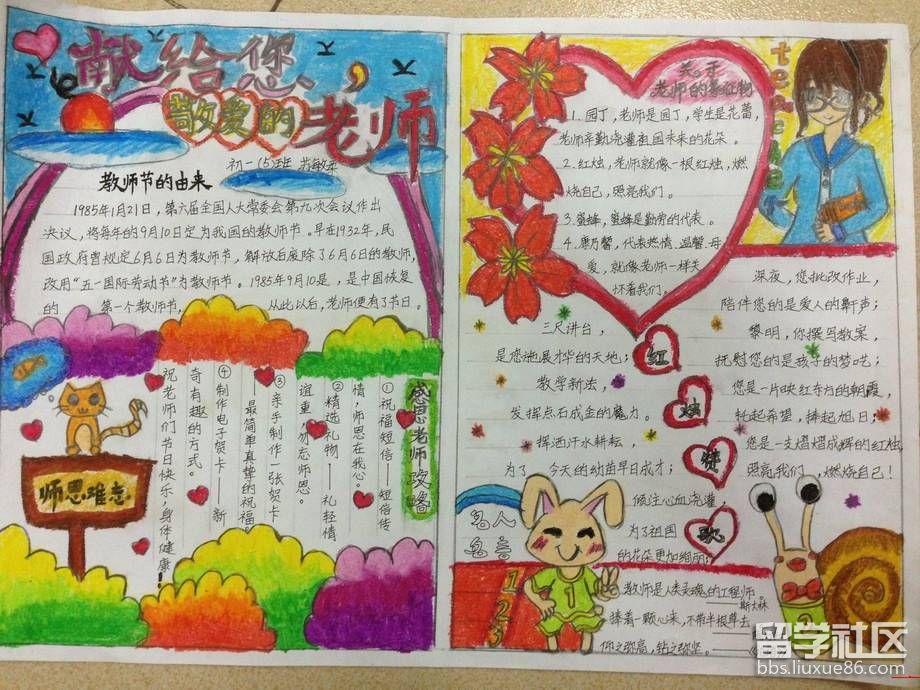 献给您、
敬爱的老师
初一(5)班
教师节的由来
1985年1月21日，第六届全国人大常委会第九次会议作出
决议，将每年的9月10日定为我国的教师节。早在1932年，民
国政府曾规定6月6日为教师节，解放后废除了6月6日的教师节，
改用"五一国际劳动节"为教师节。1985年9月10是，是中国恢复
的 第一个教师节， 从此以后，老师便有了节日。
感恩老师攻略
①祝福短信——短信传
情，师恩在我心。
②精选礼物——礼轻情
谊重，勿忘师恩。
③亲手制作一张贺卡
——最简单真挚的祝福
④制作电子贺卡——新
奇有趣的方式。
祝老师们节日快乐，身体健康！
师恩难忘
关于
老师的象征物
1.园丁，老师是园丁，学生是花蕾，
老师辛勤浇灌祖国未来的花朵。
2.红烛，老师就像一根红烛，燃
烧自己，照亮我们。
3.蜜蜂，蜜蜂是勤劳的代表。
4.康乃馨，代表热情、温馨、母
爱，就像老师一样关
怀着我们。
teacher
三尺讲台，
是您施展才华的天地；
教学新法，
发挥点石成金的魔力。
挥洒汗水耕耘，
为了 今天的幼苗早日成才；
倾注心血浇灌，
为了祖国
的花朵更加绚丽；
红
烛
赞
歌
深夜，您批改作业，
陪伴您的是爱人的鼾声；
黎明，你撰写教案，
抚慰您的是孩子的梦呓；
您是一片映红东方的朝霞，
托起希望，捧起旭日；
您是一支熠熠成辉的红烛，
照亮我们，燃烧自己！
名人
名言
1
2
3
1
教师是人类灵魂的工程师。
——斯大林
捧着一颗心来，不带半根草去
仰之弥高，钻之弥坚。
留学社区
bbs.liuxue86.com